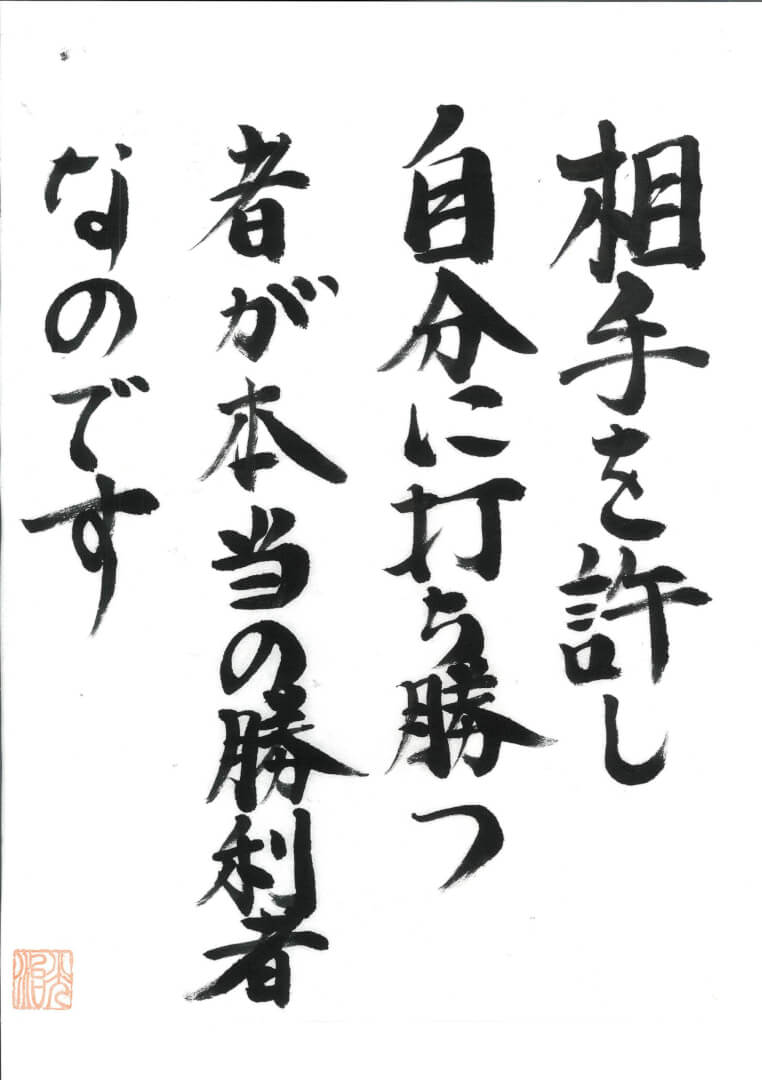 相手を許し
自分に打ち勝つ
者が本当の勝利者
なのです